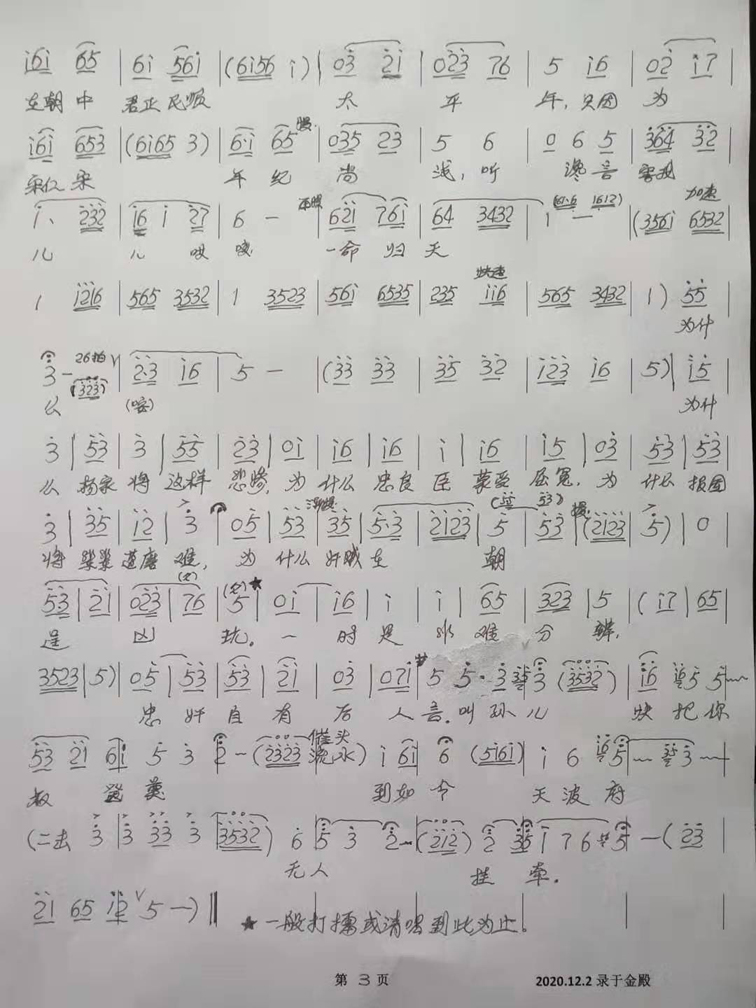 i6i 65 | 6i 56i | (6i56 i) | 03 2i | 023 76 | 5 i6 | 02 i7 |
在朝中 君正民顺 太平年,只因为
i6i 653 | (6i65 3) | 6·i 65 | 035 23 | 5 6 | 0 6 5 | 364 32 |
宋仁宗 年纪尚浅,听谗言害我
i、 232 | i6 i 27 | 6 — | 62i 76i | 64 3432 | i — | (356i 6532 |
加速
儿儿哎哎 一命归天
快速
1 i2i6 | 565 3532 | 1 3523 | 56i 6535 | 235 ii6 | 565 3432 | 1) 55 |
为什
3 — 26拍 (323) | 2·3 i6 | 5 — | (33 33 | 35 32 | i23 i6 | 5) i5 |
么 为什
3 | 53 | 3 | 55 | 23 | 0i | i6 | i6 | i | i6 | i5 | 03 | 53 | 53 |
么杨家将这样悲惨,为什么忠良臣蒙受屈冤,为什么报国
3 | 35 | i2 | 3 | 05 | 53 | 35 | 5·3 | 2i23 | 5 | 53 | (2i23 | 5) | 0 |
将桀桀遭磨难,为什么奸贼在朝
53 | 2i | 023 | 76 | 5 ★ | 0i | i6 | i | i | 65 | 323 | 5 | (i7 | 65 |
逞凶玩。一时是非难分辨,
3523 | 5) | 05 | 53 | 53 | 2i | 03 | 07i | 5 5· 3 3 (3532) | i6 5 5
忠奸自有后人言.叫孙儿 快把你
催头
53 2i 6i 5 3 2 — (2323 流水) i 6i 6 (5i6i) i 6 5 3
叔 到如今 天波府
(二击 3 | 3 33 3 | 3532) 6 5 3 2 (2i2) 2 35 i 7 6 #5 — (23
无人 挂牵.
2i 65 i2 5 —)
★一般打擂或清唱到此为止。
第 3 页 2020.12.2 录于金殿